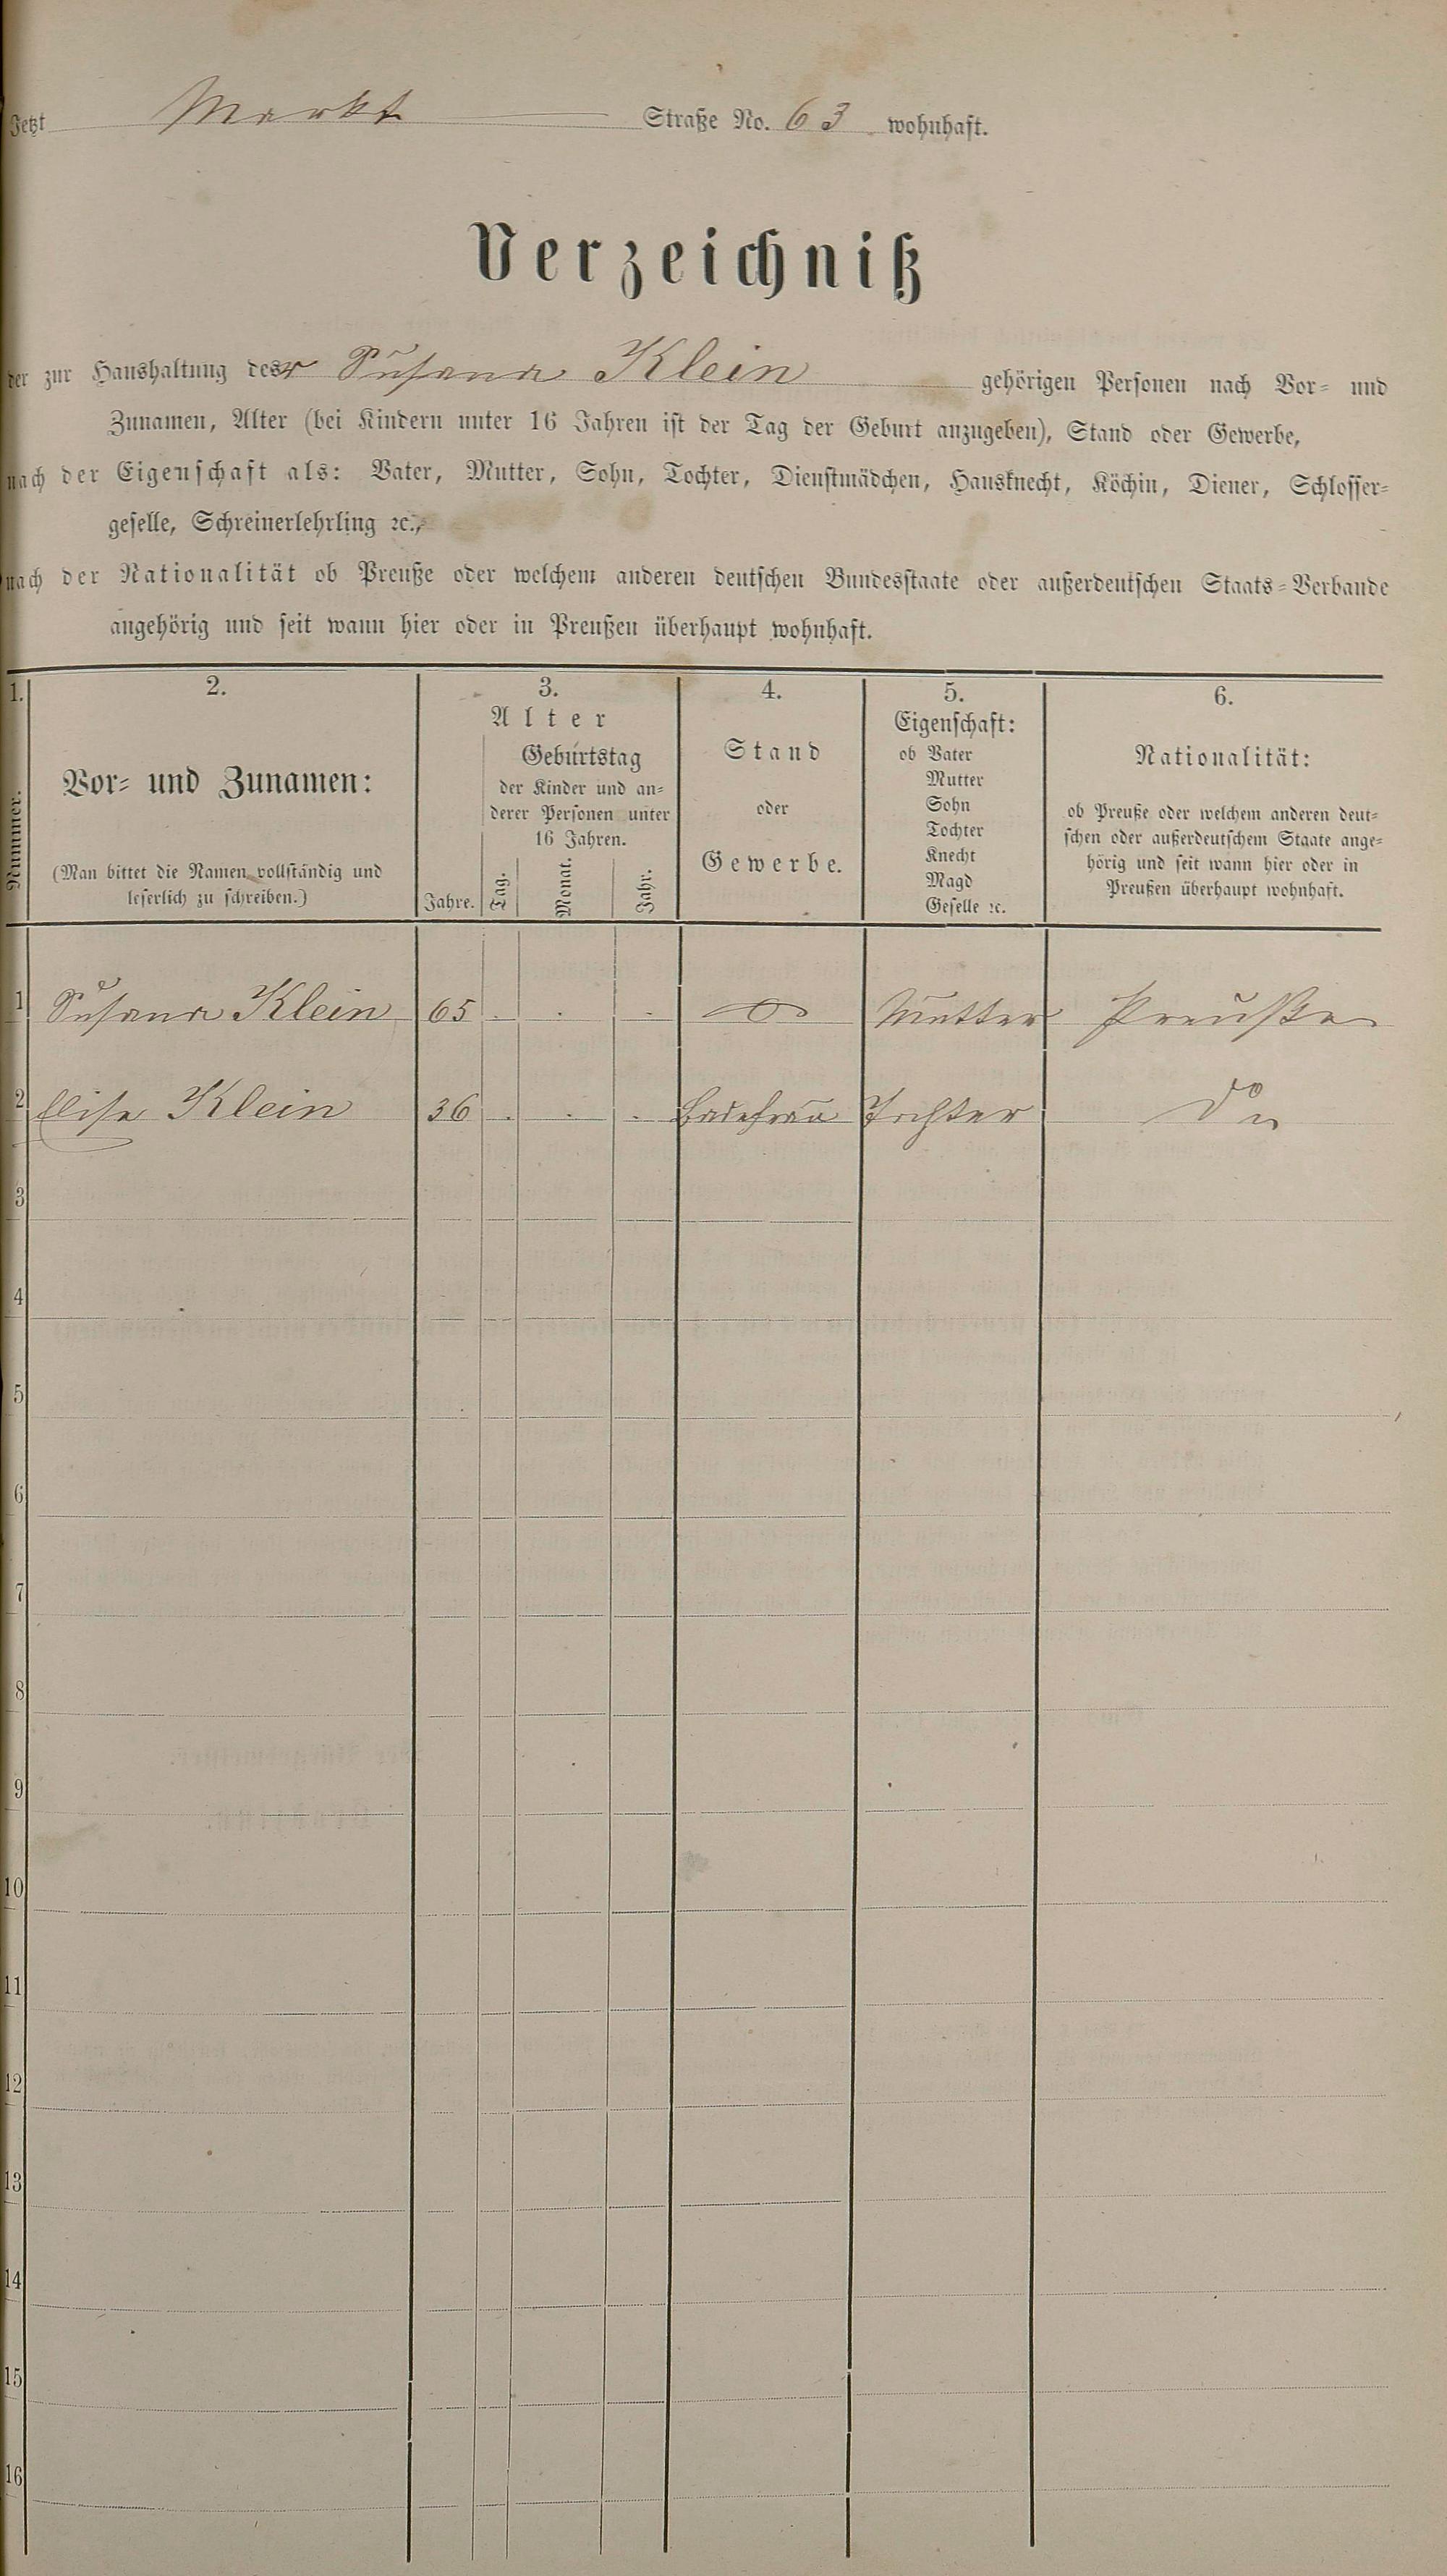 Jetzt Markt Straße No. 63 wohnhaft.
Verzeichniß
der zur Haushaltung des r Susana Klein gehörigen Personen nach Vor- und
Zunamen, Alter (bei Kindern unter 16 Jahren ist der Tag der Geburt anzugeben), Stand oder Gewerbe,
nach der Eigenschaft als: Vater, Mutter, Sohn, Tochter, Dienstmädchen, Hausknecht, Köchin, Diener, Schlosser-
geselle, Schreinerlehrling ꝛc.,
nach der Nationalität ob Preuße oder welchem anderen deutschen Bundesstaate oder außerdeutschen Staats-Verbande
angehörig und seit wann hier oder in Preußen überhaupt wohnhaft.
1.
Nummer.
2.
Vor- und Zunamen:
(Man bittet die Namen vollständig und
leserlich zu schreiben.)
3.
Alter
Geburtstag
der Kinder und an-
derer Personen unter
16 Jahren.
Jahre. Tag. Monat. Jahr.
4.
Stand
oder
Gewerbe.
5.
Eigenschaft:
ob Vater
Mutter
Sohn
Tochter
Knecht
Magd
Geselle ꝛc.
6.
Nationalität:
ob Preuße oder welchem anderen deut-
schen oder außerdeutschem Staate ange-
hörig und seit wann hier oder in
Preußen überhaupt wohnhaft.
1 Susana Klein 65 . . . Mutter Preußen
2 Elise Klein 36 . . . Badefrau Tochter do
3
4
5
6
7
8
9
10
11
12
13
14
15
16